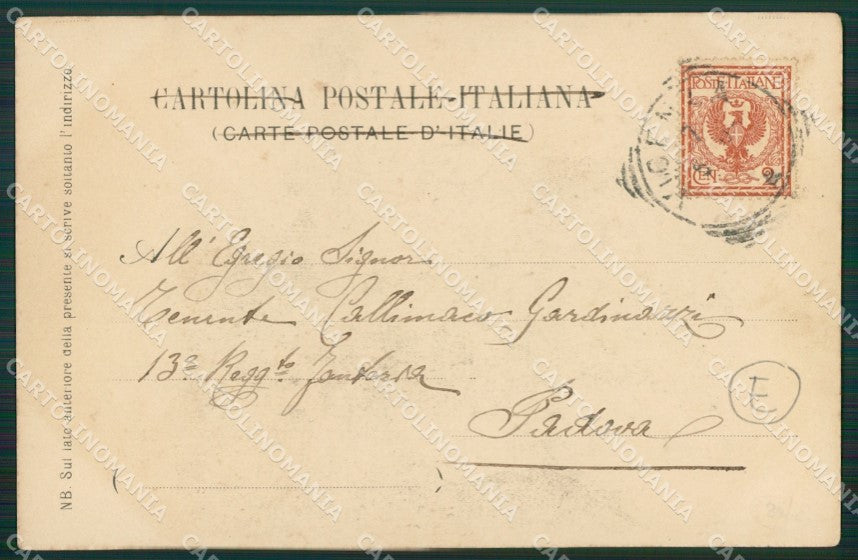 CARTOLINA POSTALE ITALIANA
(CARTE POSTALE D'ITALIE)
POSTE ITALIANE
CEN. 2
All' Egregio Signor
Tenente Callimaco Gardinazzi
13º Reggto Fanteria
Padova
NB. Sul lato anteriore della presente si scrive soltanto l'indirizzo
CARTOLINOMANIA